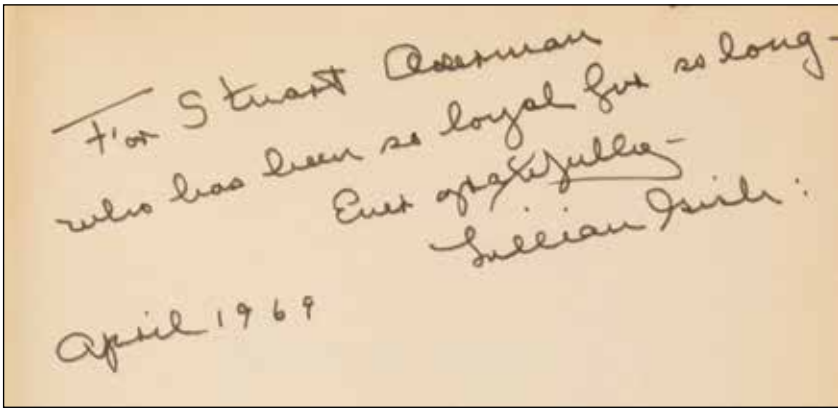 For Stuart Oderman
who has been so loyal for so long-
Ever gratefully-
Lillian Gish:
April 1969